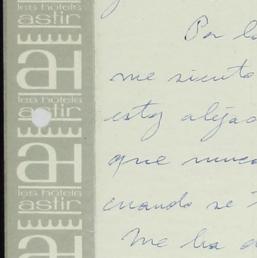 les hotels
astir
AH
les hotels
astir
AH
les hotels
astir
AH
Por l
me siento
estoy aleja
que nunca
cuando se
Me ha d